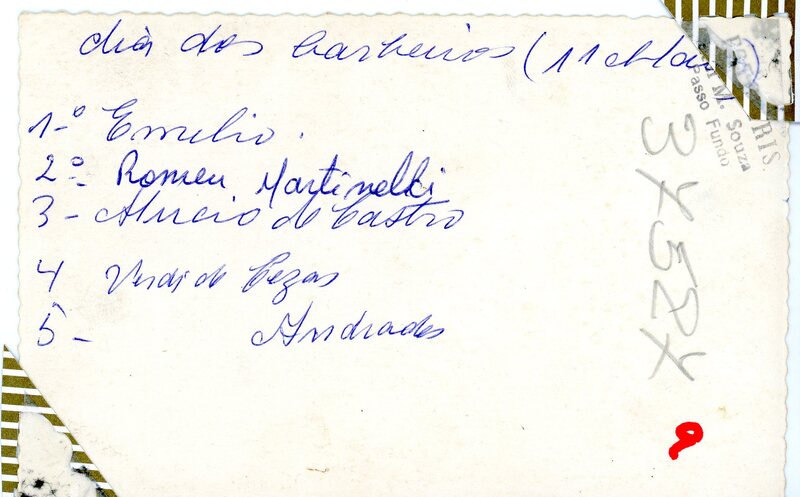 dia dos barbeiros (11
1-º Emelio.
2º- Romeu Martinelli
3- de Castro
4 Verdi de Cezar
5- Andrades
RIS
M. Souza
Passo Fundo
3X52X
9